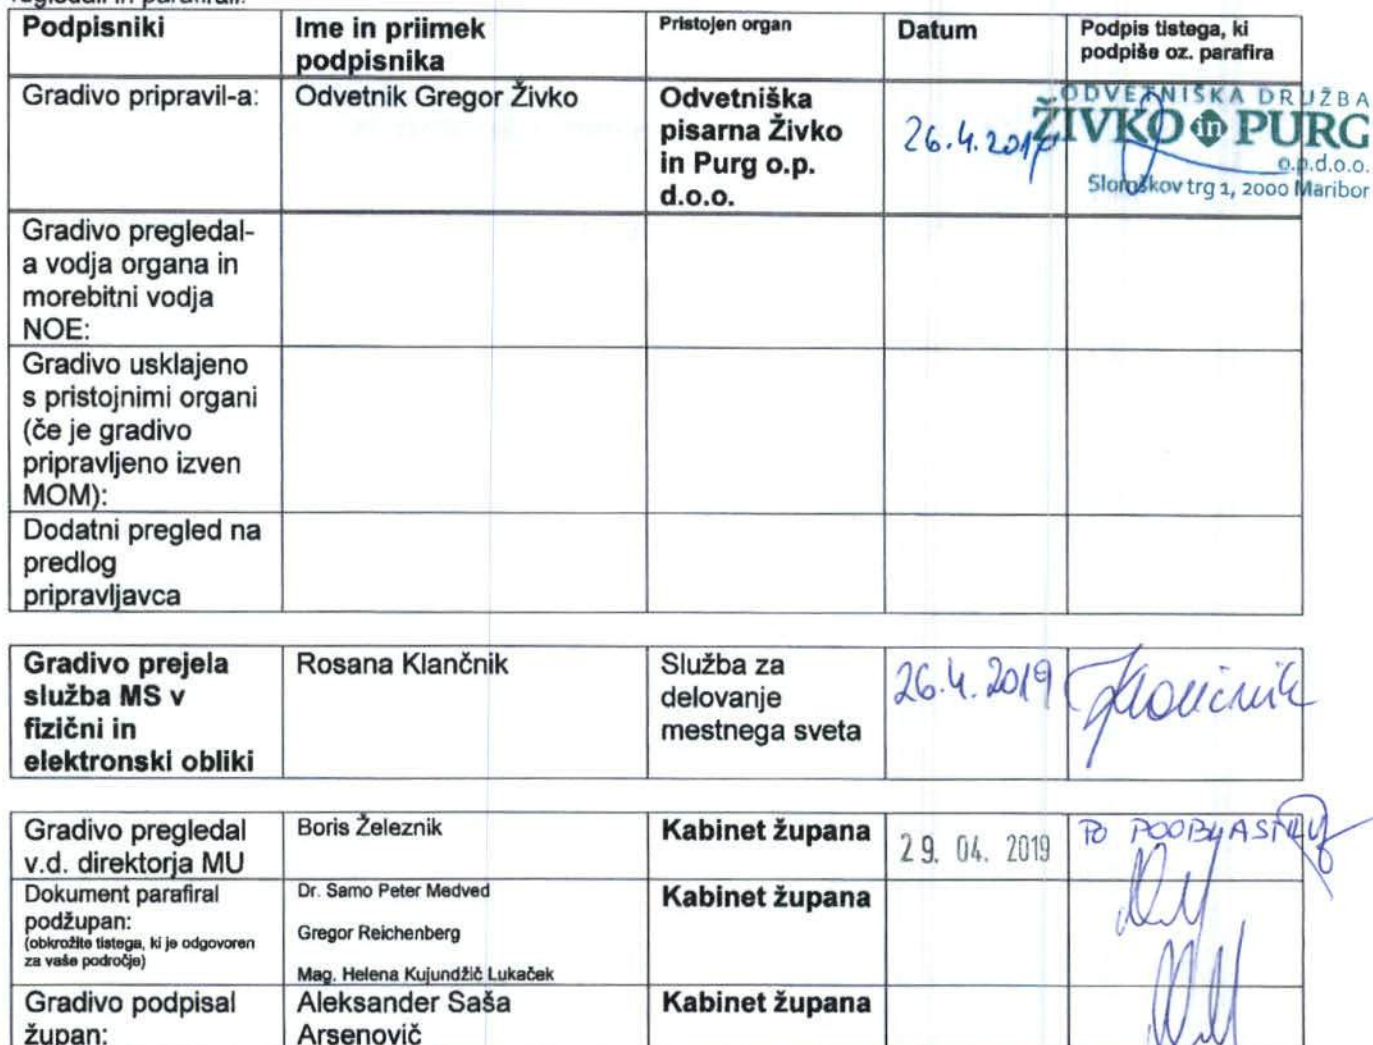 Podpisniki
Ime in priimek podpisnika
Pristojen organ
Datum
Podpis tistega, ki podpiše oz. parafira
Gradivo pripravil-a:
Odvetnik Gregor Živko
Odvetniška
pisarna Živko
in Purg o.p.
d.o.o.
26.4.2019
ODVETNIŠKA DRUŽBA
ŽIVKO in PURG
o.p.d.o.o.
Slomškov trg 1, 2000 Maribor
Gradivo pregledal-
a vodja organa in
morebitni vodja
NOE:
Gradivo usklajeno
s pristojnimi organi
(če je gradivo
pripravljeno izven
MOM):
Dodatni pregled na
predlog
pripravljavca
Gradivo prejela
služba MS v
fizični in
elektronski obliki
Rosana Klančnik
Služba za
delovanje
mestnega sveta
26.4.2019
Klančnik
Gradivo pregledal
v.d. direktorja MU
Boris Železnik
Kabinet župana
29. 04. 2019
PO POOBLASTILU
Dokument parafiral
podžupan:
(obkrožite tistega, ki je odgovoren
za vaše področje)
Dr. Samo Peter Medved
Gregor Reichenberg
Mag. Helena Kujundžič Lukaček
Kabinet župana
Gradivo podpisal
župan:
Aleksander Saša
Arsenovič
Kabinet župana